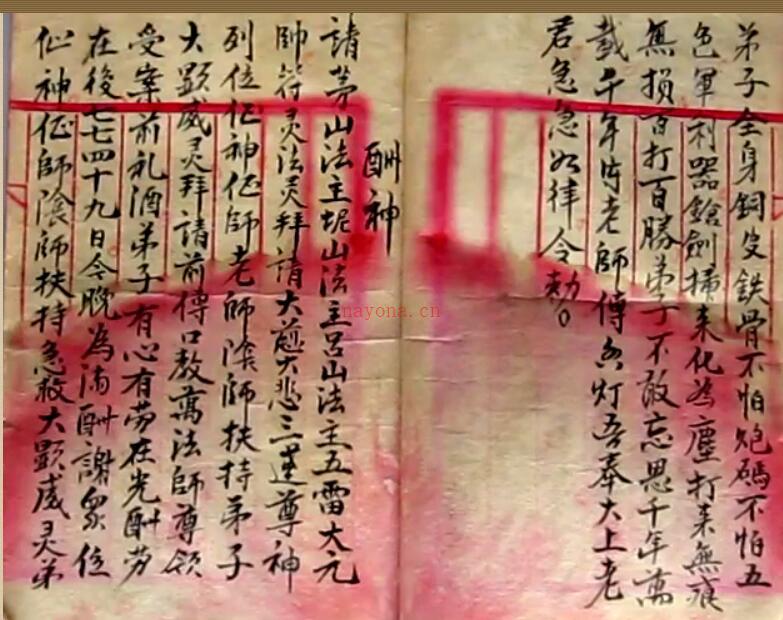 弟子全身銅皮鉄骨不怕炮碼不怕五
色軍利器鎗劍掃来化為塵打来無痕
無損百打百勝弟子不敢忘恩千年萬
載千年
老師傅
灯吾奉大上老
君急急如律令勅。
酬神
請茅山法主
山法主呂山法主五雷大元
帥符灵法灵拜請大慈大悲三
尊神
列位
神
師老師陰師扶持弟子
大顕威灵拜請前傳口教萬法師尊領
受案前礼酒弟子有心有劳在先酬劳
在後七七四十九日今晚為満酬謝眾位
仙神
師陰師扶持急救大顕威灵弟
nayona.cn